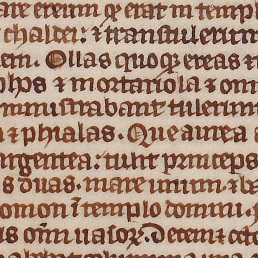 are ereum qꝫ erat in templ
chaldei: & transtulerunt
em. Ollas quoqꝫ ereas &
hos & mortariola & om
ministrabant tulerun
n & phialas. Que aurea
rgentea: tulit princeps
s duas. mare unum. & ba
omon ī templo domini.
is om̄i uasoꝝ. Decem & octo